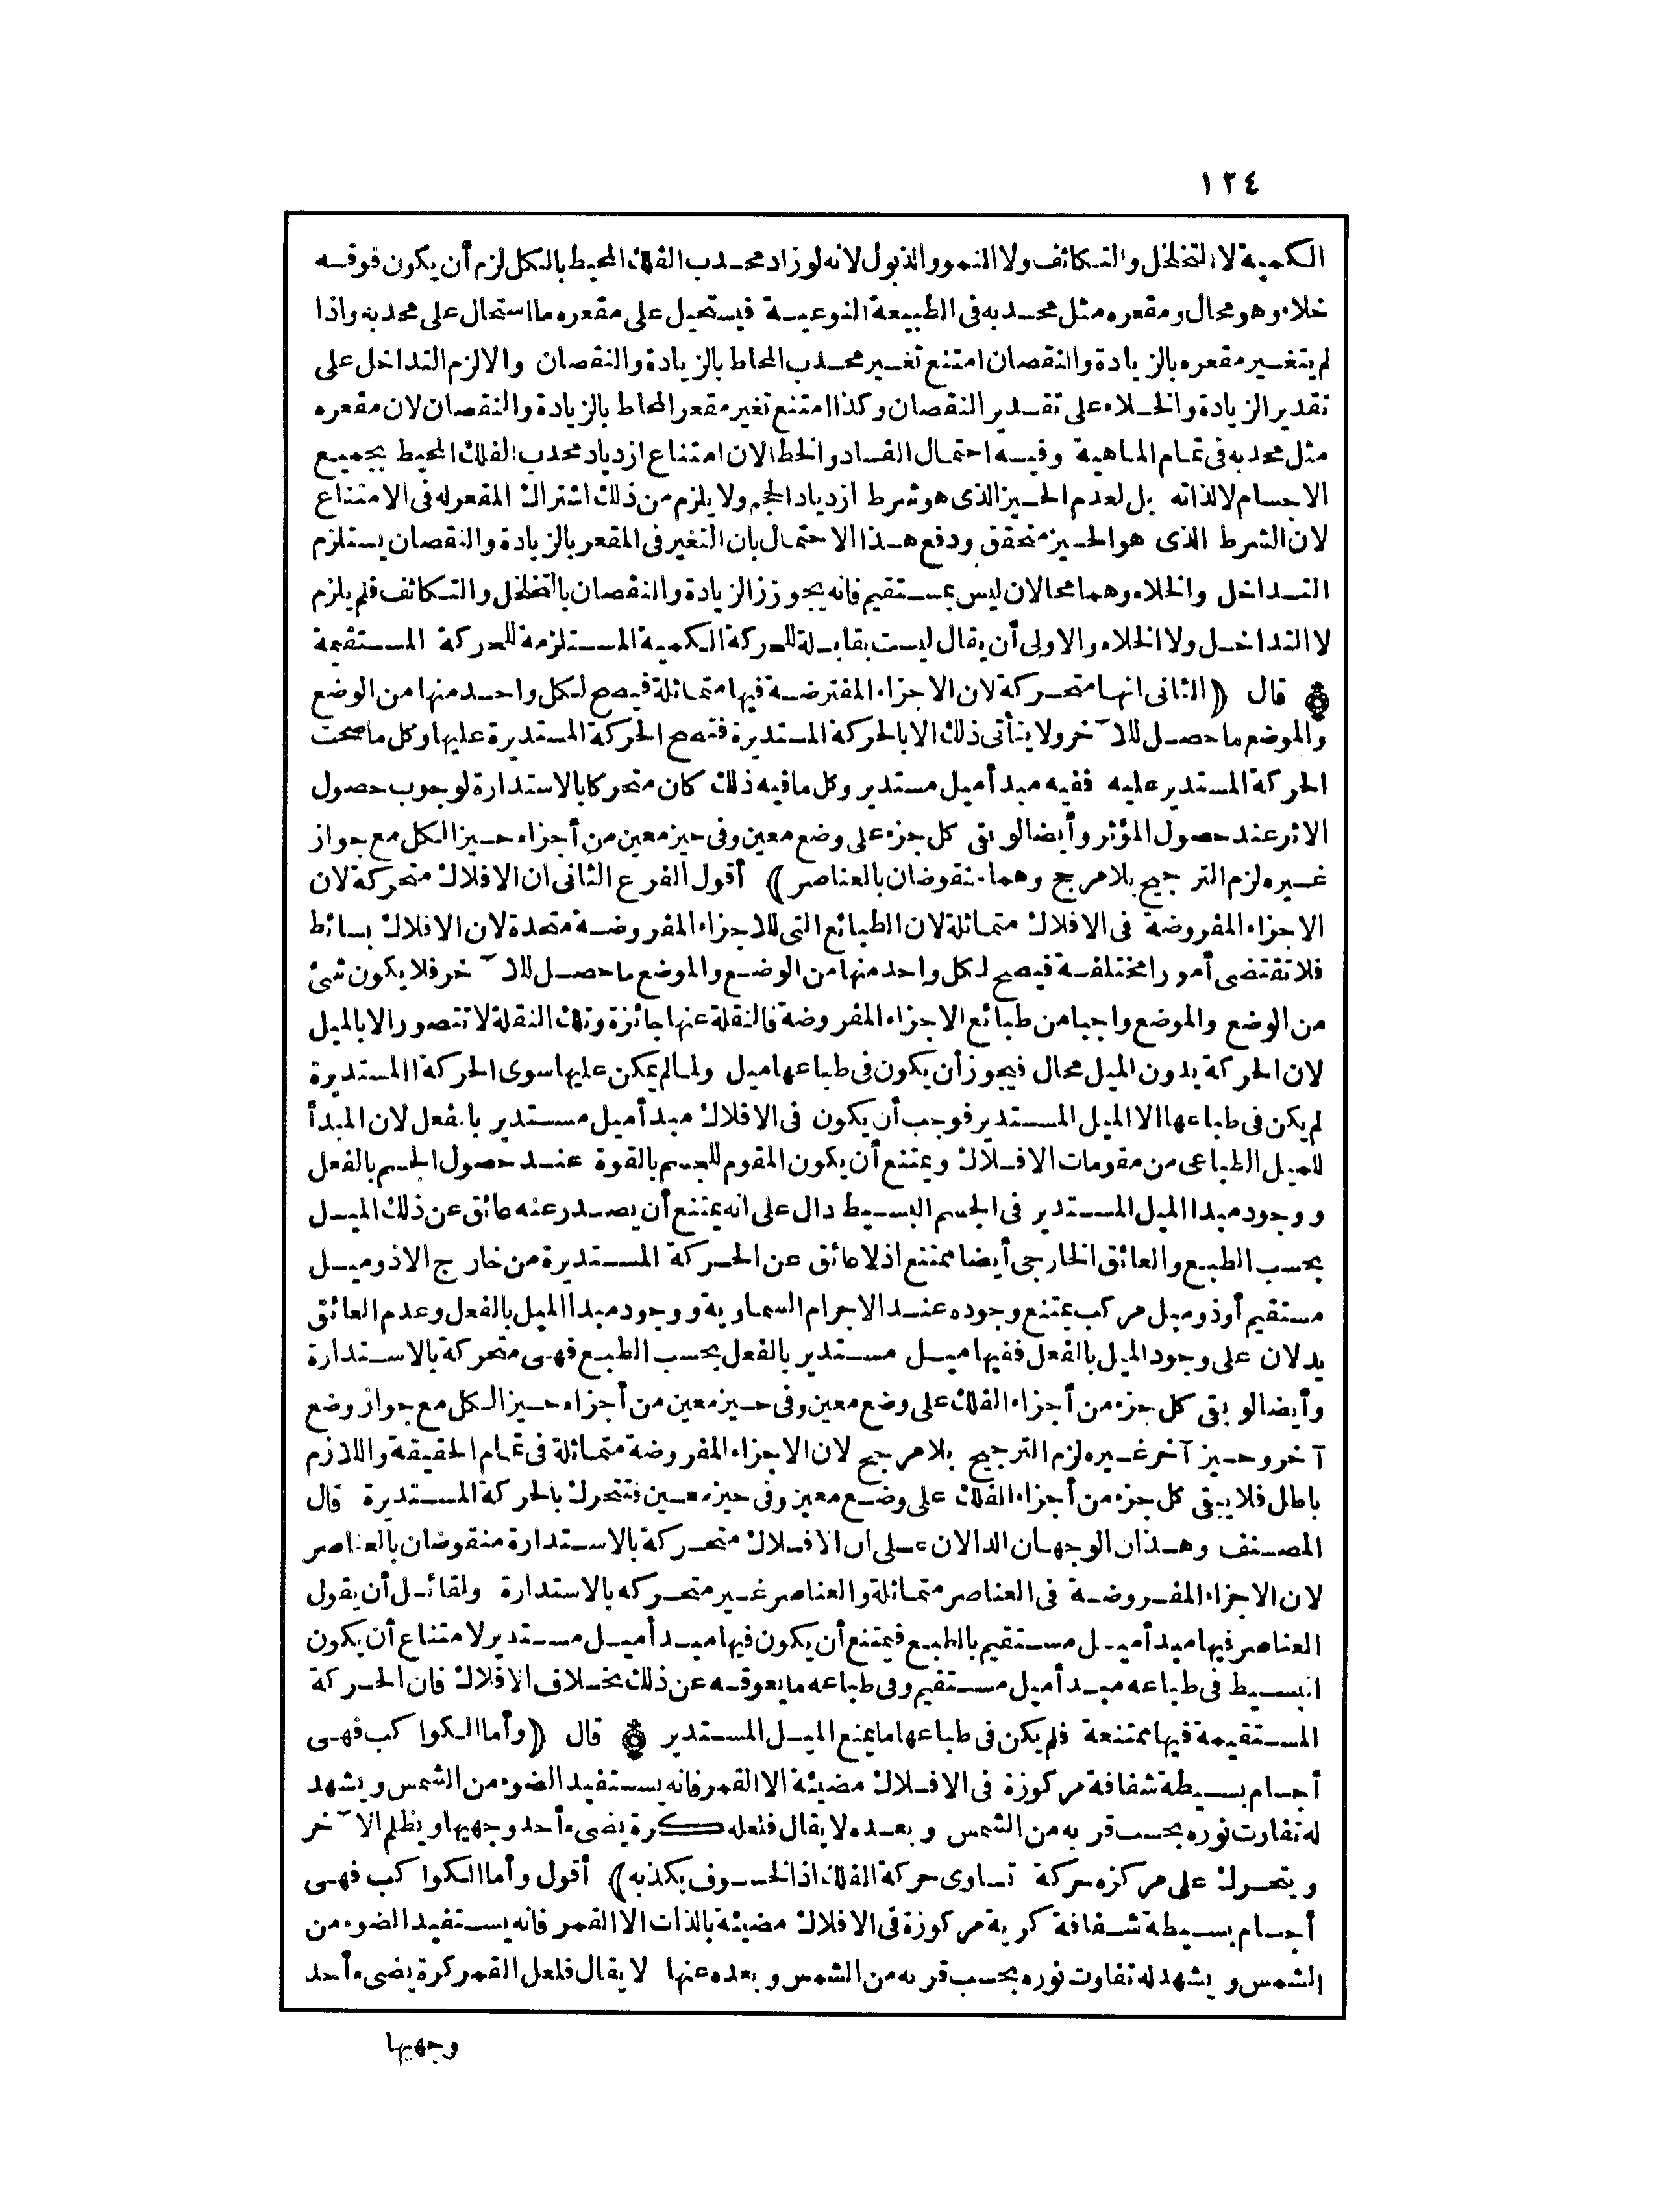 ١٢٤
الكمية لا التخلخل والتكاثف ولا النمو والذبول لانه لو زاد محدب الفلك المحيط بالكل لزم أن يكون فوقه
خلاء وهو محال ومقعره مثل محدبه فى الطبيعة النوعية فيستحيل على مقعره ما استحال على محدبه واذا
لم يتغير مقعره بالزيادة والنقصان امتنع تغير محدب المحاط بالزيادة والنقصان والا لزم التداخل على
تقدير الزيادة والخلاء على تقدير النقصان وكذا امتنع تغير مقعر المحاط بالزيادة والنقصان لان مقعره
مثل محدبه فى تمام الماهية وفيه احتمال الفساد والخطا لان امتناع ازدياد محدب الفلك المحيط بجميع
الاجسام لا لذاته بل لعدم الحيز الذى هو شرط ازدياد الحجم ولا يلزم من ذلك اشتراك المقعر له فى الامتناع
لان الشرط الذى هو الحيز متحقق ودفع هذا الاحتمال بان التغير فى المقعر بالزيادة والنقصان يستلزم
التداخل والخلاء وهما محالان ليس بمستقيم فانه يجوز ز الزيادة والنقصان بالتخلخل والتكاثف فلم يلزم
لا التداخل ولا الخلاء والاولى أن يقال ليست بقابلة للحركة الكمية المستلزمة للحركة المستقيمة
قال (الثانى انها متحركة لان الاجزاء المفترضة فيها متماثلة فيصح لكل واحد منها من الوضع
والموضع ما حصل للآخر ولا يتأتى ذلك الا بالحركة المستديرة فتصح الحركة المستديرة عليها وكل ما صحت
الحركة المستدير عليه ففيه مبدأ ميل مستدير وكل ما فيه ذلك كان متحركا بالاستدارة لوجوب حصول
الاثر عند حصول المؤثر وأيضا لو بقى كل جزء على وضع معين وفى حيز معين من أجزاء حيز الكل مع جواز
غيره لزم الترجيح بلا مرجح وهما منقوضان بالعناصر) أقول الفرع الثانى ان الافلاك متحركة لان
الاجزاء المفروضة فى الافلاك متماثلة لان الطبائع التى للاجزاء المفروضة متحدة لان الافلاك بسائط
فلا تقتضى أمورا مختلفة فيصح لكل واحد منها من الوضع والموضع ما حصل للآخر فلا يكون شئ
من الوضع والموضع واجبا من طبائع الاجزاء المفروضة فالنقلة عنها جائزة وتلك النقلة لا تتصور الا بالميل
لان الحركة بدون الميل محال فيجوز أن يكون فى طباعها ميل ولما لم يمكن عليها سوى الحركة المستديرة
لم يكن فى طباعها الا الميل المستدير فوجب أن يكون فى الافلاك مبدأ ميل مستدير بالفعل لان المبدأ
للميل الطباعى من مقومات الافلاك ويمتنع أن يكون المقوم للجسم بالقوة عند حصول الجسم بالفعل
ووجود مبدا الميل المستدير فى الجسم البسيط دال على انه يمتنع أن يصدر عنه عائق عن ذلك الميل
بحسب الطبع والعائق الخارجى أيضا ممتنع اذ لا عائق عن الحركة المستديرة من خارج الا ذو ميل
مستقيم أو ذو ميل مركب يمتنع وجوده عند الاجرام السماوية ووجود مبدا الميل بالفعل وعدم العائق
يدلان على وجود الميل بالفعل ففيها ميل مستدير بالفعل بحسب الطبع فهى متحركة بالاستدارة
وأيضا لو بقى كل جزء من أجزاء الفلك على وضع معين وفى حيز معين من أجزاء حيز الكل مع جواز وضع
آخر وحيز آخر غيره لزم الترجيح بلا مرجح لان الاجزاء المفروضة متماثلة فى تمام الحقيقة واللازم
باطل فلا يبقى كل جزء من أجزاء الفلك على وضع معين وفى حيز معين فتتحرك بالحركة المستديرة قال
المصنف وهذان الوجهان الدالان على ان الافلاك متحركة بالاستدارة منقوضان بالعناصر
لان الاجزاء المفروضة فى العناصر متماثلة والعناصر غير متحركه بالاستدارة ولقائل أن يقول
العناصر فيها مبدأ ميل مستقيم بالطبع فيمتنع أن يكون فيها مبدأ ميل مستدير لامتناع أن يكون
البسيط فى طباعه مبدأ ميل مستقيم وفى طباعه ما يعوقه عن ذلك بخلاف الافلاك فان الحركة
المستقيمة فيها ممتنعة فلم يكن فى طباعها ما يمنع الميل المستدير قال (وأما الكواكب فهى
أجسام بسيطة شفافة مركوزة فى الافلاك مضيئة الا القمر فانه يستفيد الضوء من الشمس ويشهد
له تفاوت نوره بحسب قربه من الشمس وبعده لا يقال فلعله كرة يضىء أحد وجهيها ويظلم الآخر
ويتحرك على مركزه حركة تساوى حركة الفلك اذ الخسوف يكذبه) أقول وأما الكواكب فهى
أجسام بسيطة شفافة كرية مركوزة فى الافلاك مضيئة بالذات الا القمر فانه يستفيد الضوء من
الشمس ويشهد له تفاوت نوره بحسب قربه من الشمس وبعده عنها لا يقال فلعل القمر كرة يضىء أحد
وجهيها